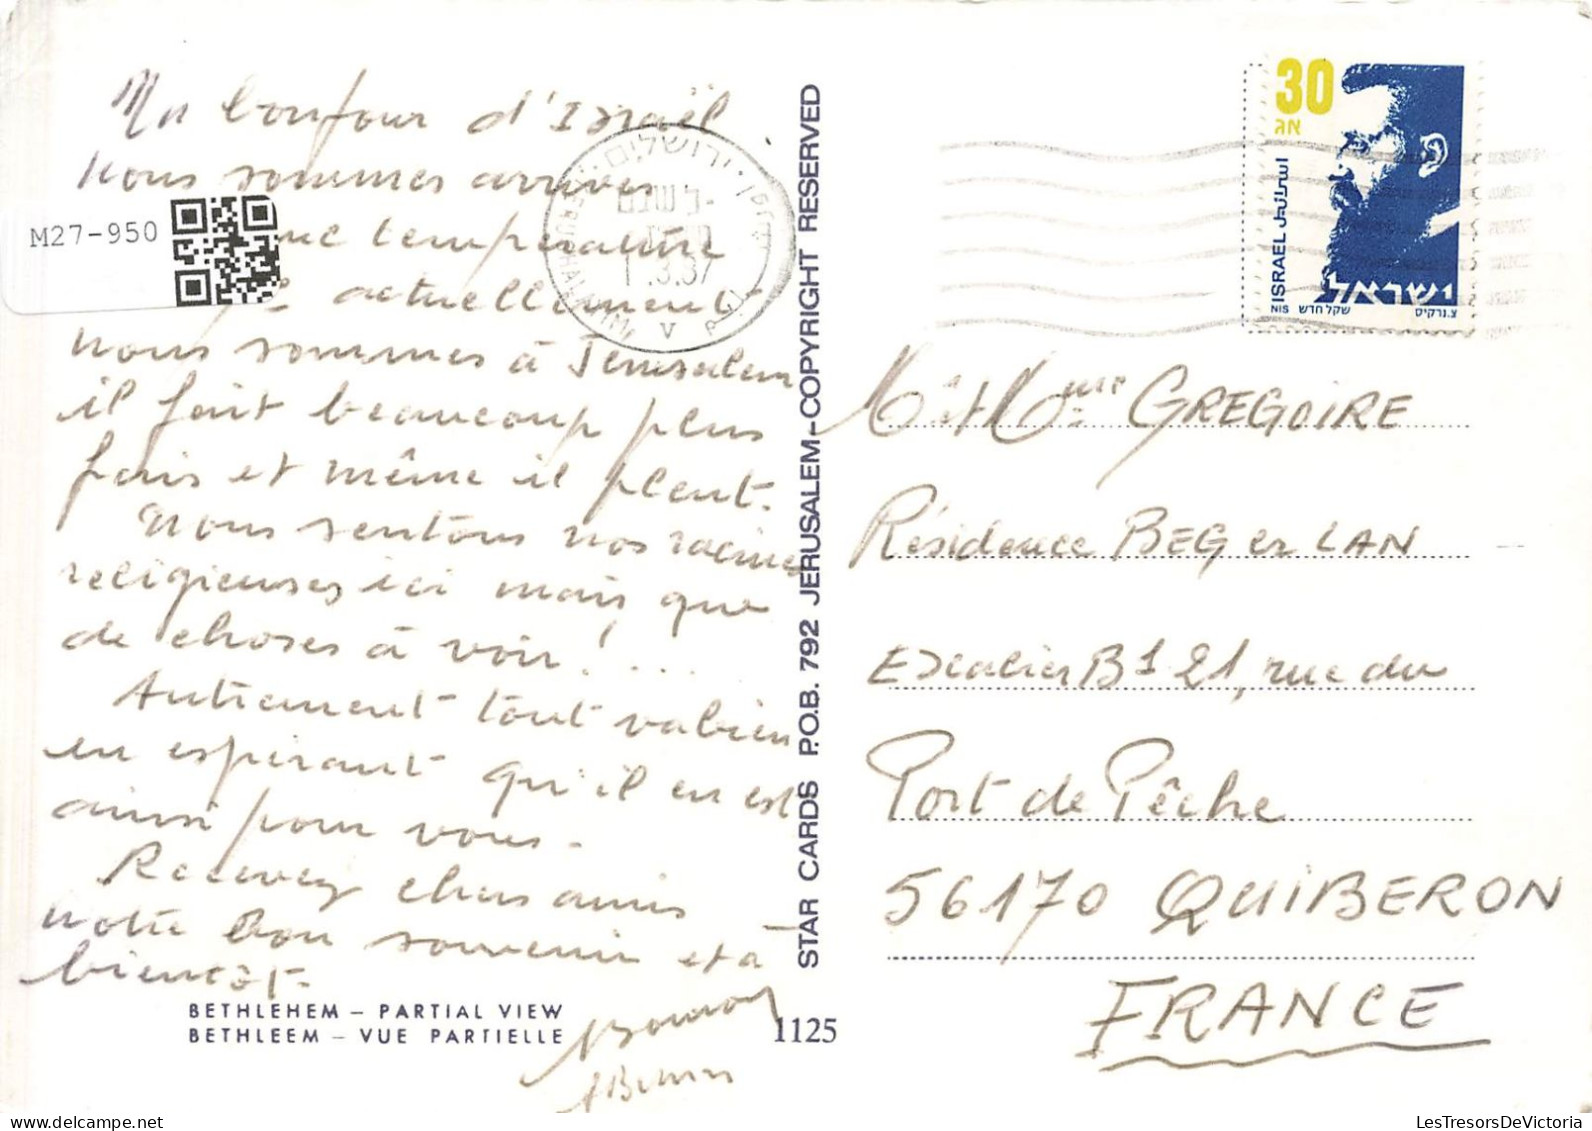 Un bonjour d'Israël
Nous sommes arrivés
une température
actuellement
nous sommes à Jerusalem
il fait beaucoup plus
frais et même il pleut.
Nous sentons nos racines
religieuses ici mais que
de choses à voir! ...
Autrement tout va bien
en espérant qu'il en est
ainsi pour vous.
Recevez chers amis
notre bon souvenir et à
bientôt.
M27-950
BETHLEHEM – PARTIAL VIEW
BETHLEEM – VUE PARTIELLE
1125
STAR CARDS P.O.B. 792 JERUSALEM–COPYRIGHT RESERVED
ירושלים
30
אג
ISRAEL اسرائيل
ישראל
NIS שקל חדש
צ.נרקיס
Mr et Mme GREGOIRE
Résidence BEG er LAN
Escalier B1 21, rue du
Port de Pêche
56170 QUIBERON
FRANCE
LesTresorsDeVictoria.com